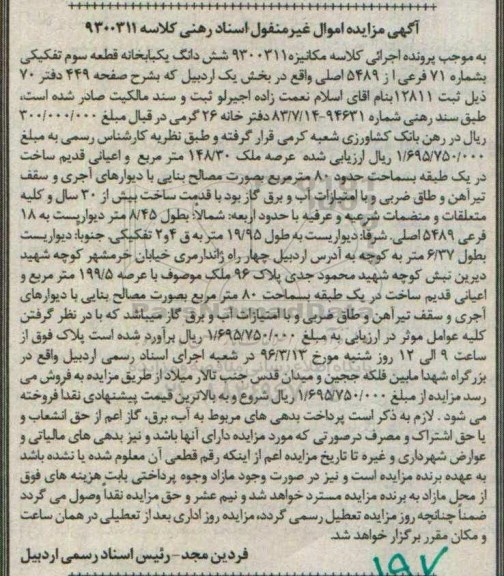 آگهی مزایده اموال غیرمنقول اسناد رهنی کلاسه ۹۳۰۰۳۱۱
به موجب پرونده اجرائی کلاسه مکانیزه۹۳۰۰۳۱۱ شش دانگ یکبابخانه قطعه سوم تفکیکی
بشماره ۷۱ فرعی از ۵۴۸۹ اصلی واقع در بخش یک اردبیل که بشرح صفحه ۴۴۹ دفتر ۷۰
ذیل ثبت ۱۲۸۱۱بنام اقای اسلام نعمت زاده اجیرلو ثبت و سند مالکیت صادر شده است،
طبق سند رهنی شماره ۹۴۶۳۱-۸۳/۷/۱۴ دفتر خانه ۲۶ گرمی در قبال مبلغ ۳۰۰/۰۰۰/۰۰۰
ریال در رهن بانک کشاورزی شعبه کرمی قرار گرفته و طبق نظریه کارشناس رسمی به مبلغ
۱/۶۹۵/۷۵۰/۰۰۰ ریال ارزیابی شده عرصه ملک ۱۴۸/۳۰ متر مربع و اعیانی قدیم ساخت
در یک طبقه بسماحت حدود ۸۰ مترمربع بصورت مصالح بنایی با دیوارهای آجری و سقف
تیرآهن و طاق ضربی و با امتیازات آب و برق گاز بود با قدمت ساخت بیش از ۳۰ سال و کلیه
متعلقات و منضمات شرعیه و عرفیه با حدود اربعه: شمالا: بطول ۸/۴۵ متر دیواریست به ۱۸
فرعی ۵۴۸۹ اصلی. شرقا: دیواریست به طول ۱۹/۹۵ متر به ق ۴و۲ تفکیکی. جنوبا: دیواریست
بطول ۶/۳۷ متر به کوچه به آدرس اردبیل چهار راه ژاندارمری خیابان خرمشهر کوچه شهید
دیرین نبش کوچه شهید محمود جدی پلاک ۹۶ ملک موصوف با عرصه ۱۹۹/۵ متر مربع و
اعیانی قدیم ساخت در یک طبقه بسماحت ۸۰ متر مربع بصورت مصالح بنایی با دیوارهای
آجری و سقف تیر آهن و طاق ضربی و با امتیازات آب و برق گاز میباشد که با در نظر گرفتن
کلیه عوامل موثر در ارزیابی به مبلغ ۱/۶۹۵/۷۵۰/۰۰۰ ریال برآورد شده است پلاک فوق از
ساعت ۹ الی ۱۲ روز شنبه مورخ ۹۶/۳/۱۳ در شعبه اجرای اسناد رسمی اردبیل واقع در
بزرگراه شهدا مابین فلکه ججین و میدان قدس جنب تالار میلاد از طریق مزایده به فروش می
رسد مزایده از مبلغ ۱/۶۹۵/۷۵۰/۰۰۰ ریال شروع و به بالاترین قیمت پیشنهادی نقدا فروخته
می شود . لازم به ذکر است پرداخت بدهی های مربوط به آب، برق، گاز اعم از حق انشعاب و
یا حق اشتراک و مصرف درصورتی که مورد مزایده دارای آنها باشد و نیز بدهی های مالیاتی و
عوارض شهرداری و غیره تا تاریخ مزایده اعم از اینکه رقم قطعی آن معلوم شده یا نشده باشد
به عهده برنده مزایده است و نیز در صورت وجود مازاد وجوه پرداختی بابت هزینه های فوق
از محل مازاد به برنده مزایده مسترد خواهد شد و نیم عشر و حق مزایده نقداً وصول می گردد
ضمناً چنانچه روز مزایده تعطیل رسمی گردد، مزایده روز اداری بعد از تعطیلی در همان ساعت
و مکان مقرر برگزار خواهد شد.
فردین مجد - رئیس اسناد رسمی اردبیل
۱۹۷